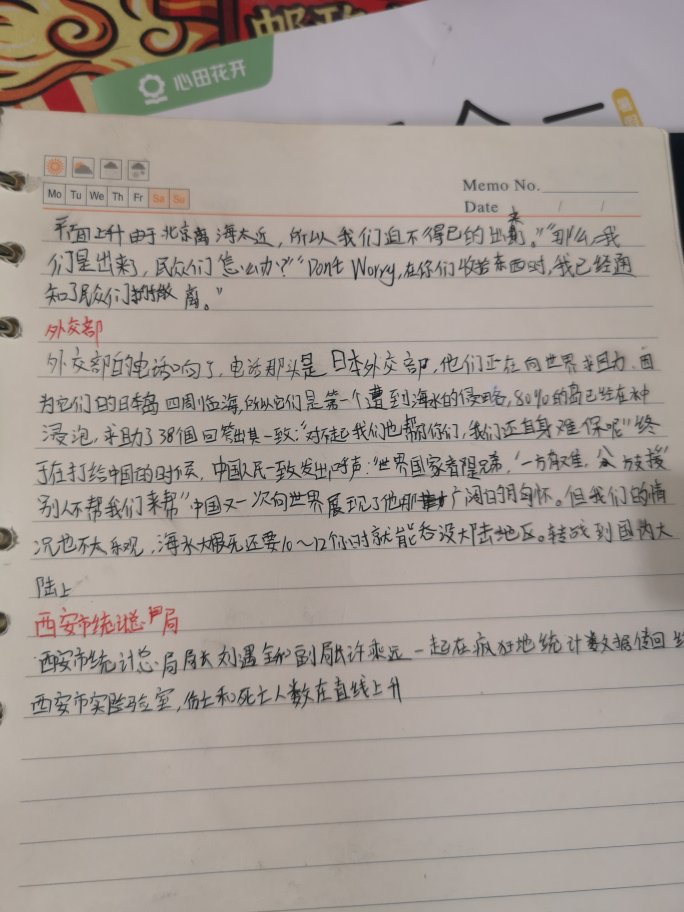 心田花开
Memo No.
Mo Tu We Th Fr Sa Su
Date / /
平面上升由于北京离海太近，所以我们迫不得已的出来。”“那么，我
们是出来了，民众们怎么办？”“Dont Worry,在你们收拾东西时，我已经通
知了民众们撤离。”
外交部
外交部的电话响了，电话那头是日本外交部，他们正在向世界求助，因
为它们的日本岛四周临海，所以它们是第一个遭到海水的侵略，80%的岛已经在被
浸泡，求助了38个国回答出其一致：“对不起我们也帮你们，我们还自身难保呢”终
于在打给中国的时候，中国人民一致发出呼声：“世界国家皆是兄弟，‘一方有难，八方支援’
别人不帮我们来帮”中国又一次向世界展现了他那广阔的胸怀。但我们的情
况也不太乐观，海水大概还要10～12个小时就能吞没大陆地区。转战到国内大
陆上
西安市统计总局
西安市统计总局局长刘遇全和副局长许乘远一起在疯狂地统计数据传回
西安市实验室，伤亡和死亡人数在直线上升